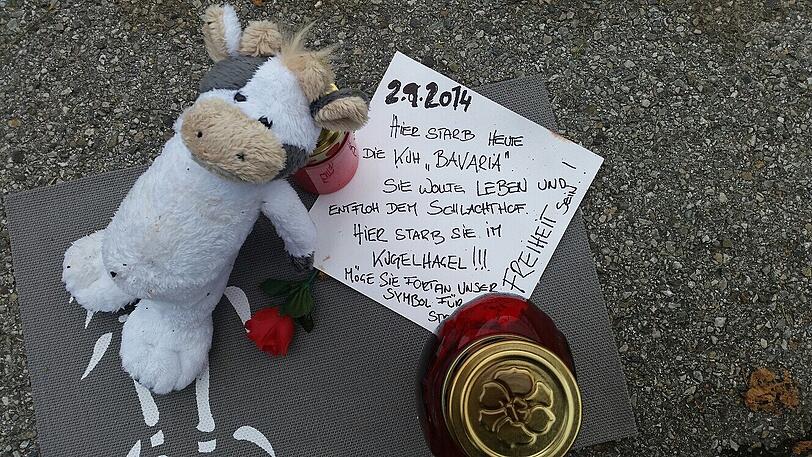 2.9.2014
HIER STARB HEUTE
DIE KUH „BAVARIA".
SIE WOLLTE LEBEN UND
ENTFLOH DEM SCHLACHTHOF.
HIER STARB SIE IM
KUGELHAGEL!!!
MÖGE SIE FORTAN UNSER
SYMBOL FÜR
FREIHEIT SEIN!